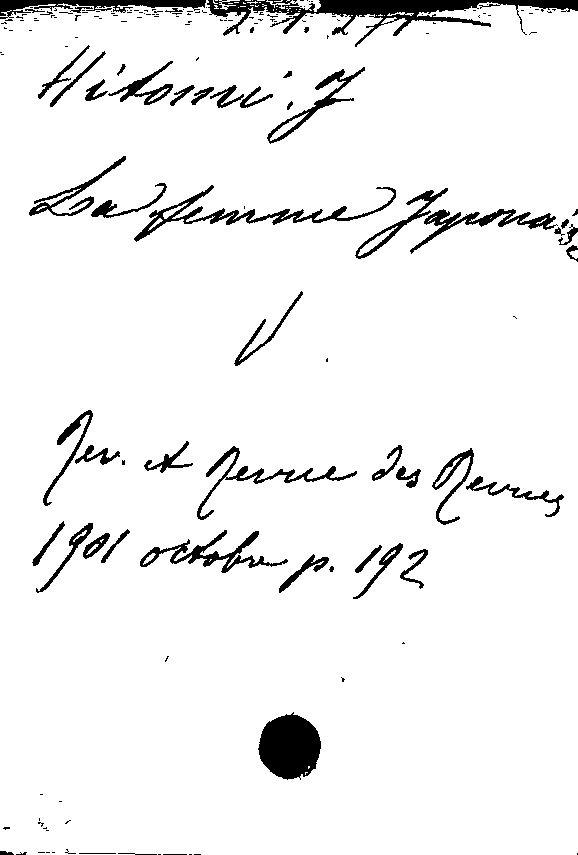 2. 1. 277
Hitomi. J
La femme Japonaise
V
Rev. et Revue des Revues
1901 octobre p. 192